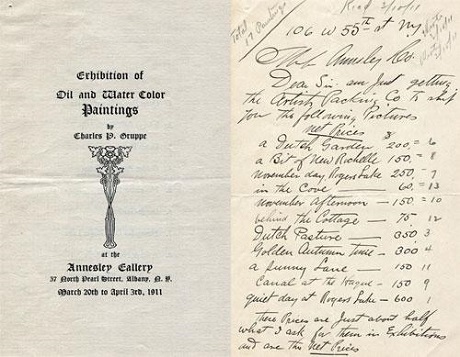 Exhibition of
Oil and Water Color
Paintings
by
Charles P. Gruppe
at the
Annesley Gallery
37 North Pearl Street, Albany, N. Y.
March 20th to April 3rd, 1911
Total
17 Paintings
Recd 3/10/11
106 W 55th st Ny
Wrote
3/10/11
3/10/11
Annesley Co.
Dear Sir. am just getting
the Artists Packing Co to ship
you the following Pictures
net Prices $
a Dutch Garden 200,= 6
a Bit of New Rochelle 150,= 8
november day Rogers Lake 250- 7
in the Cove — 60,= 13
november Afternoon — 150= 10
behind the Cottage — 75 12
Dutch Pasture — 350 3
Golden Autumn Time - 300 4
a funny Lane — 150 11
Canal at the Hague — 150 9
quiet day at Rogers Lake - 600 1
These Prices are just about half
what I ask for them in Exhibitions
and are the Net Prices